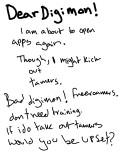 Dear Digimon!
I am about to open
apps again.
Though, I might kick
out
tamers.
Bad digimon! Freeroamers.
don't need training.
If i do take out tamers
would you be upset?